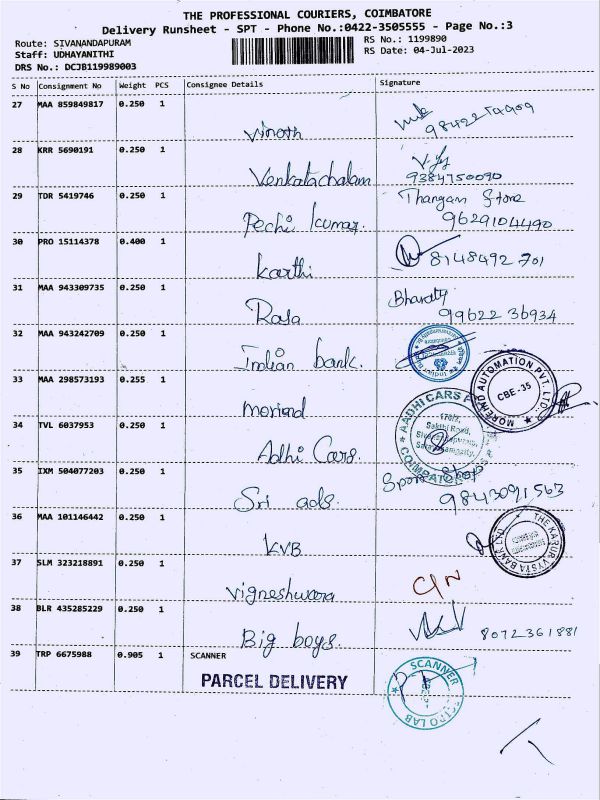 THE PROFESSIONAL COURIERS, COIMBATORE
Delivery Runsheet - SPT - Phone No.:0422-3505555 - Page No.:3
Route: SIVANANDAPURAM
RS No.: 1199890
Staff: UDHAYANITHI
RS Date: 04-Jul-2023
DRS No.: DCJB119989003
S No Consignment No Weight PCS Consignee Details Signature
27 MAA 859849817 0.250 1
Vinoth
28 KRR 5690191 0.250 1
Venkatachalam 9384750090
29 TDR 5419746 0.250 1 Thangam Store
Pechi kumar. 9629104490
30 PRO 15114378 0.400 1
karthi 8148492701
31 MAA 943309735 0.250 1 Bharath
Raja 99622 36934
32 MAA 943242709 0.250 1
Indian bank.
33 MAA 298573193 0.255 1
MOREWD AUTOMATION PVT. LTD. CBE-35
34 TVL 6037953 0.250 1
Adhi Cars. AADHI CARS COIMBATORE
35 IXM 504077203 0.250 1
Sri ads. 9843091563
36 MAA 101146442 0.250 1
KVB THE KARUR VYSYA BANK LTD
37 SLM 323218891 0.250 1
Vigneshwara
38 BLR 435285229 0.250 1
Big boys. 8072361881
39 TRP 6675988 0.905 1 SCANNER
PARCEL DELIVERY
SCANNER